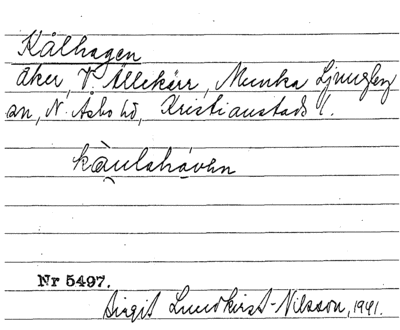 Kålhagen
åker, V. Ällekärr, Munka Ljungby
sn, N. Åsbo hd, Kristianstads l.
Nr 5497.
Birgit Lundkvist-Nilsson, 1941.